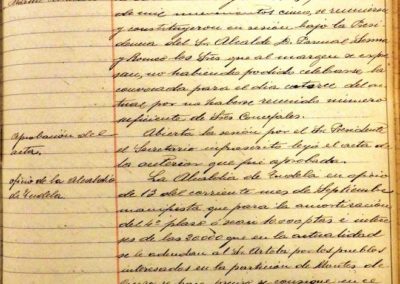 de mil novecientos cinco, se reunieron
y constituyeron en sesión bajo la Presi
dencia del Sr Alcalde D. Pascual
y los Sres que al margen se expre
san, no habiendo podido celebrarse la
convocada para el día catorce del ac
tual por no haberse reunido número
suficiente de Sres Concejales.
Aprobación de el
acta.
Abierta la sesión por el Sr Presidente
el Secretario infrascrito leyó el acta de
la anterior que fué aprobada.
oficio de la Alcaldia
de Tudela.
La Alcaldia de Tudela en oficio
de 13 del corriente mes de Septiembre
manifiesta que para la amortización
del 4º plazo ó sean 10000 ptas é intere
ses de las 20000 que en la actualidad
se le adeudan al Sr por los pueblos
interesados en la partición de Montes de